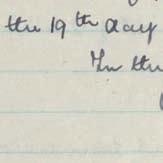 the 19th day
In the